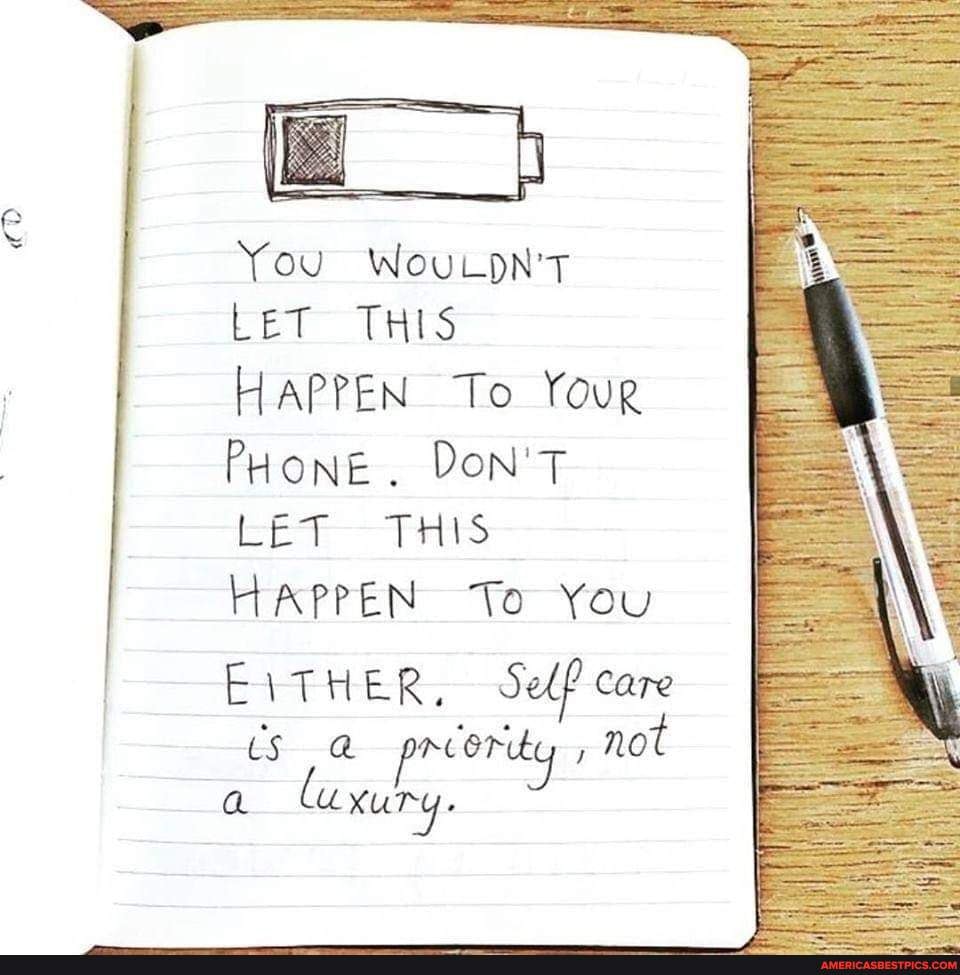 e
YOU WOULDN'T
LET THIS
HAPPEN TO YOUR
PHONE. DON'T
LET THIS
HAPPEN TO YOU
EITHER. Self care
is a priority, not
a luxury.
AMERICASBESTPICS.COM